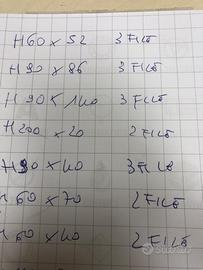 H60 x 52 3 FILE
H90 x 86 3 FILE
H90 x 140 3 FILE
H200 x 20 2 FILE
H90 x 40 3 FILE
H 60 x 70 2 FILE
H 60 x 40 2 FILE
subito